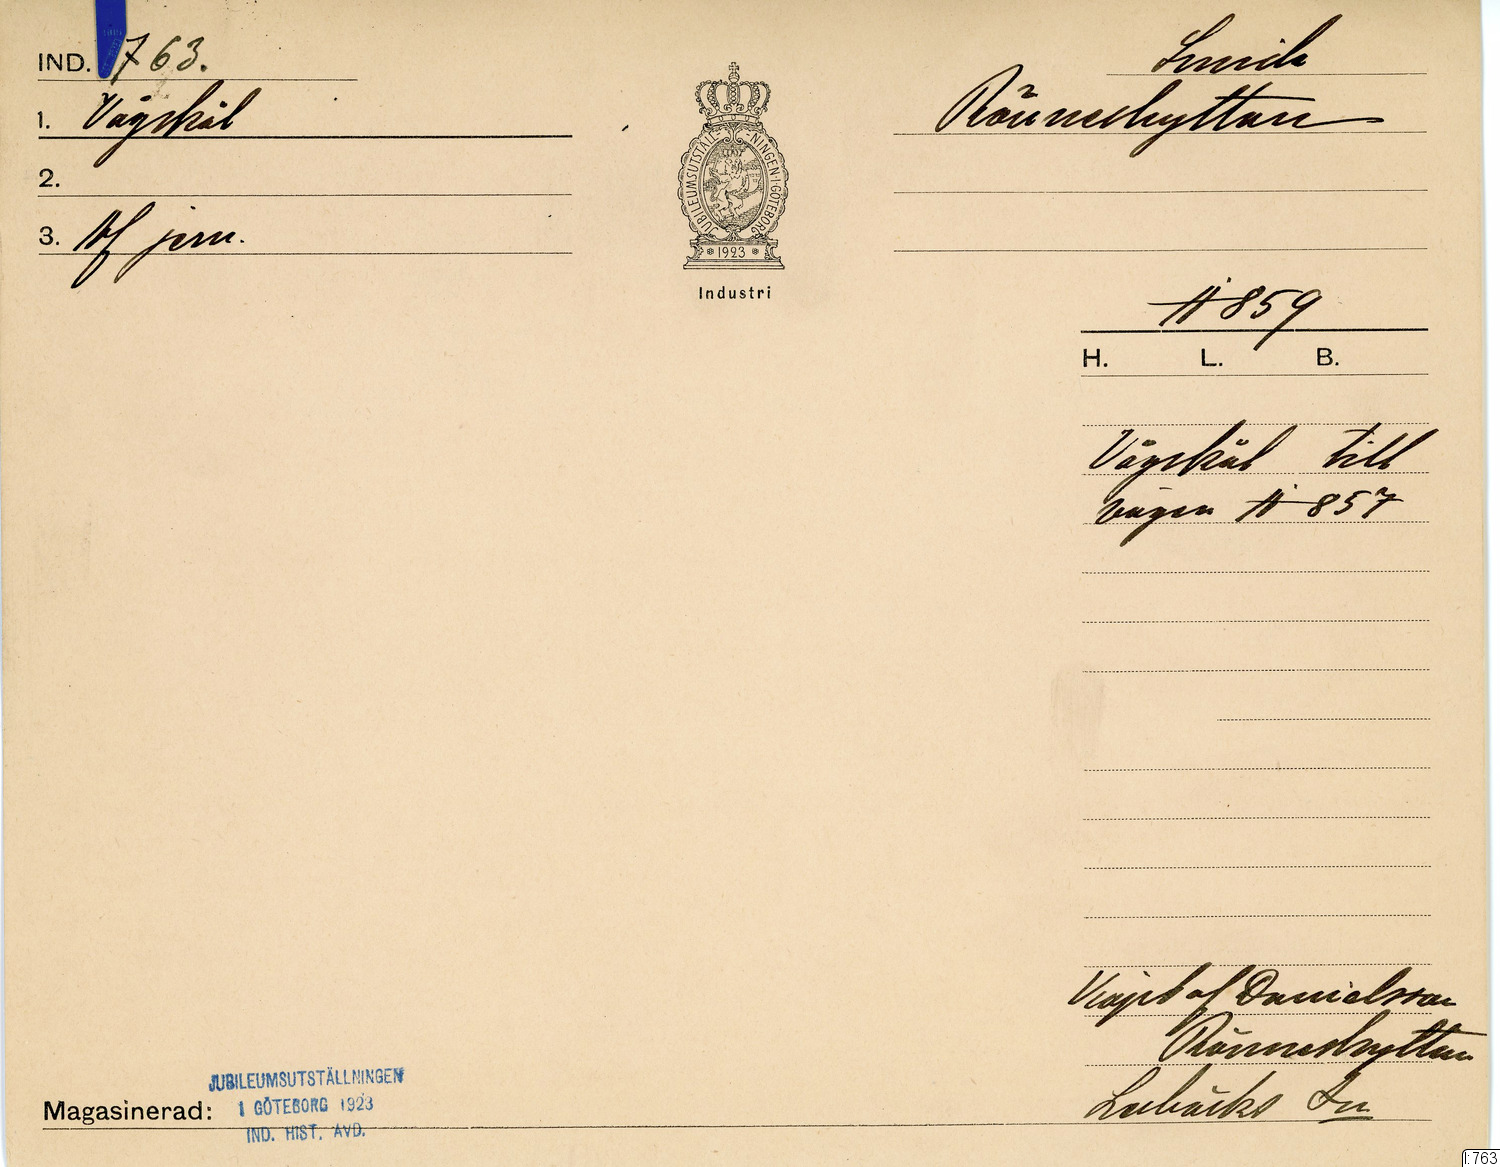 IND. 763.
1. Vågskål
2.
3. Af jern.
JUBILEUMSUTSTÄLLNINGEN·I·GÖTEBORG
1923
Industri
Smide
Rönneshyttan
H 859
H. L. B.
Vågskål till
vågen H 857
af Danielsson
Rönneshyttan
Lerbäcks Sn
Magasinerad:
JUBILEUMSUTSTÄLLNINGEN
I GÖTEBORG 1923
IND. HIST. AVD.
I:763